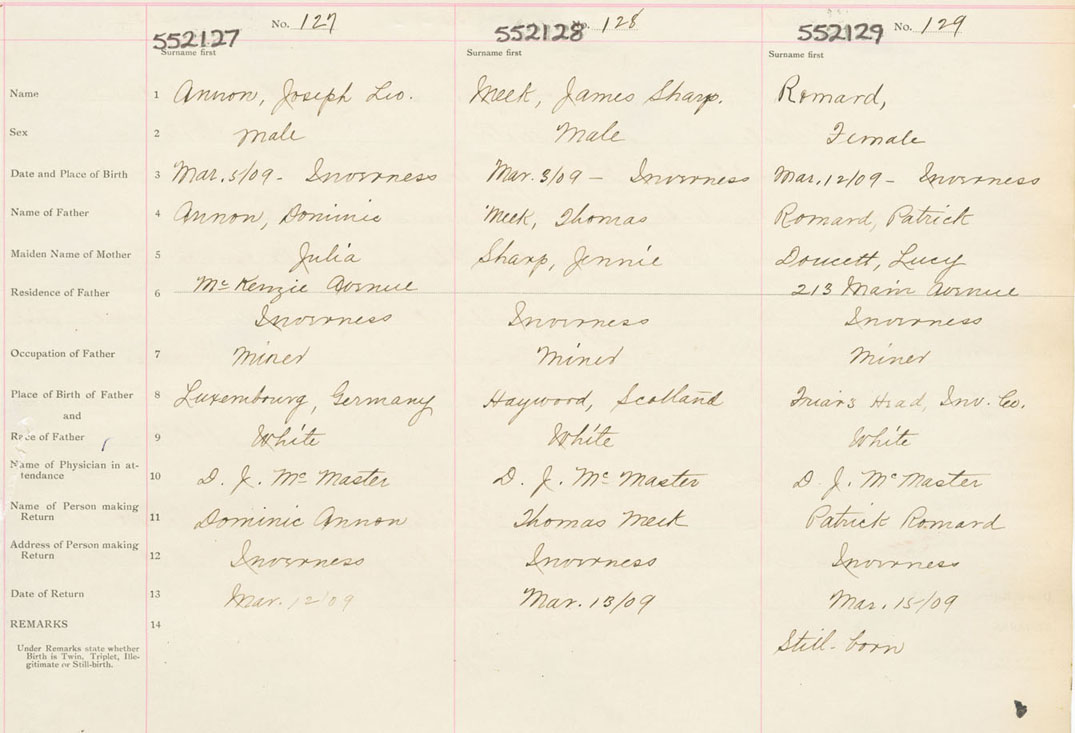 No. 127 No. 128 No. 129
552127 552128 552129
Surname first Surname first Surname first
Name 1 Annon, Joseph Leo. Meek, James Sharp. Romard,
Sex 2 Male Male Female
Date and Place of Birth 3 Mar. 5/09 - Inverness Mar. 3/09 - Inverness Mar. 12/09 - Inverness
Name of Father 4 Annon, Dominic Meek, Thomas Romard, Patrick
Maiden Name of Mother 5 Julia Sharp, Jennie Doucett, Lucy
Residence of Father 6 McKenzie Avenue 213 Main Avenue
Inverness Inverness Inverness
Occupation of Father 7 Miner Miner Miner
Place of Birth of Father 8 Luxembourg, Germany Haywood, Scotland Friars Head, Inv. Co.
and
Race of Father 9 White White White
Name of Physician in at-
tendance 10 D. J. McMaster D. J. McMaster D. J. McMaster
Name of Person making
Return 11 Dominic Annon Thomas Meek Patrick Romard
Address of Person making
Return 12 Inverness Inverness Inverness
Date of Return 13 Mar. 12/09 Mar. 13/09 Mar. 15/09
REMARKS 14
Still-born
Under Remarks state whether
Birth is Twin, Triplet, Ille-
gitimate or Still-birth.